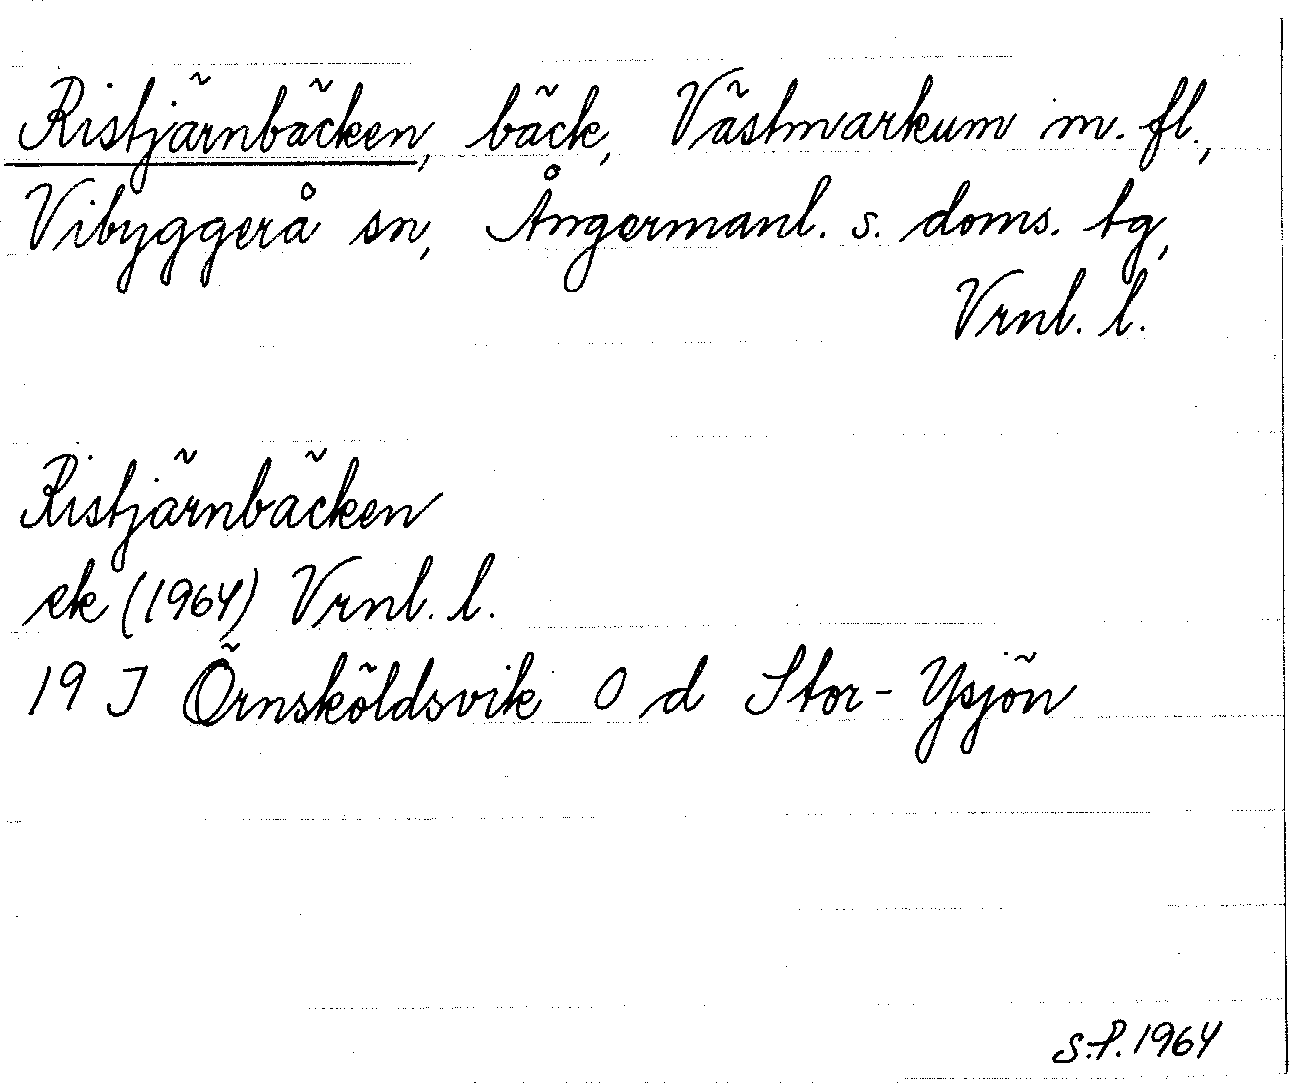 Ristjärnbäcken, bäck, Västmarkum m. fl.,
Vibyggerå sn, Ångermanl. s. doms. tg,
Vrnl. l.
Ristjärnbäcken
ek (1964) Vrnl. l.
19 J Örnsköldsvik O d Stor-Ysjön
S.P. 1964